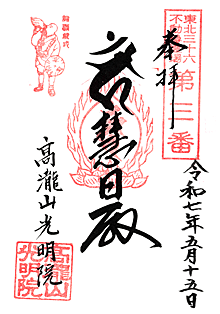 奉拝
東北三十六
不動尊霊場
第三番
慧日殿
令和七年五月十五日
高瀧山光明院
高瀧山
光明院